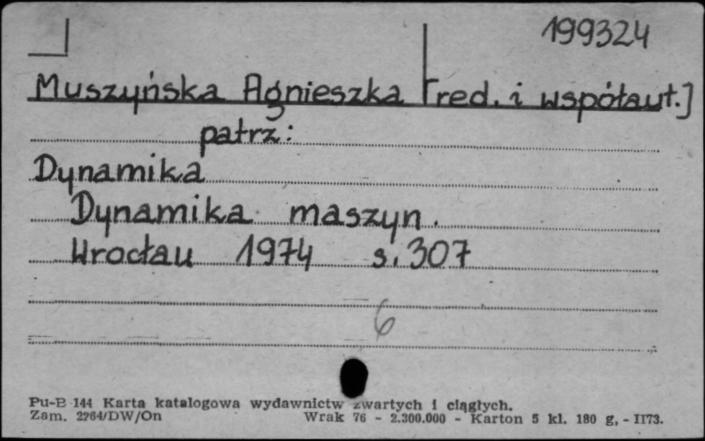 199324
Muszyńska Agnieszka [red. i współaut.]
patrz:
Dynamika
Dynamika maszyn.
Wrocław 1974 s. 307
6
Pu-B 144 Karta katalogowa wydawnictw zwartych i ciągłych.
Zam. 2764/DW/On Wrak 76 - 2.300.000 - Karton 5 kl. 180 g, - II73.